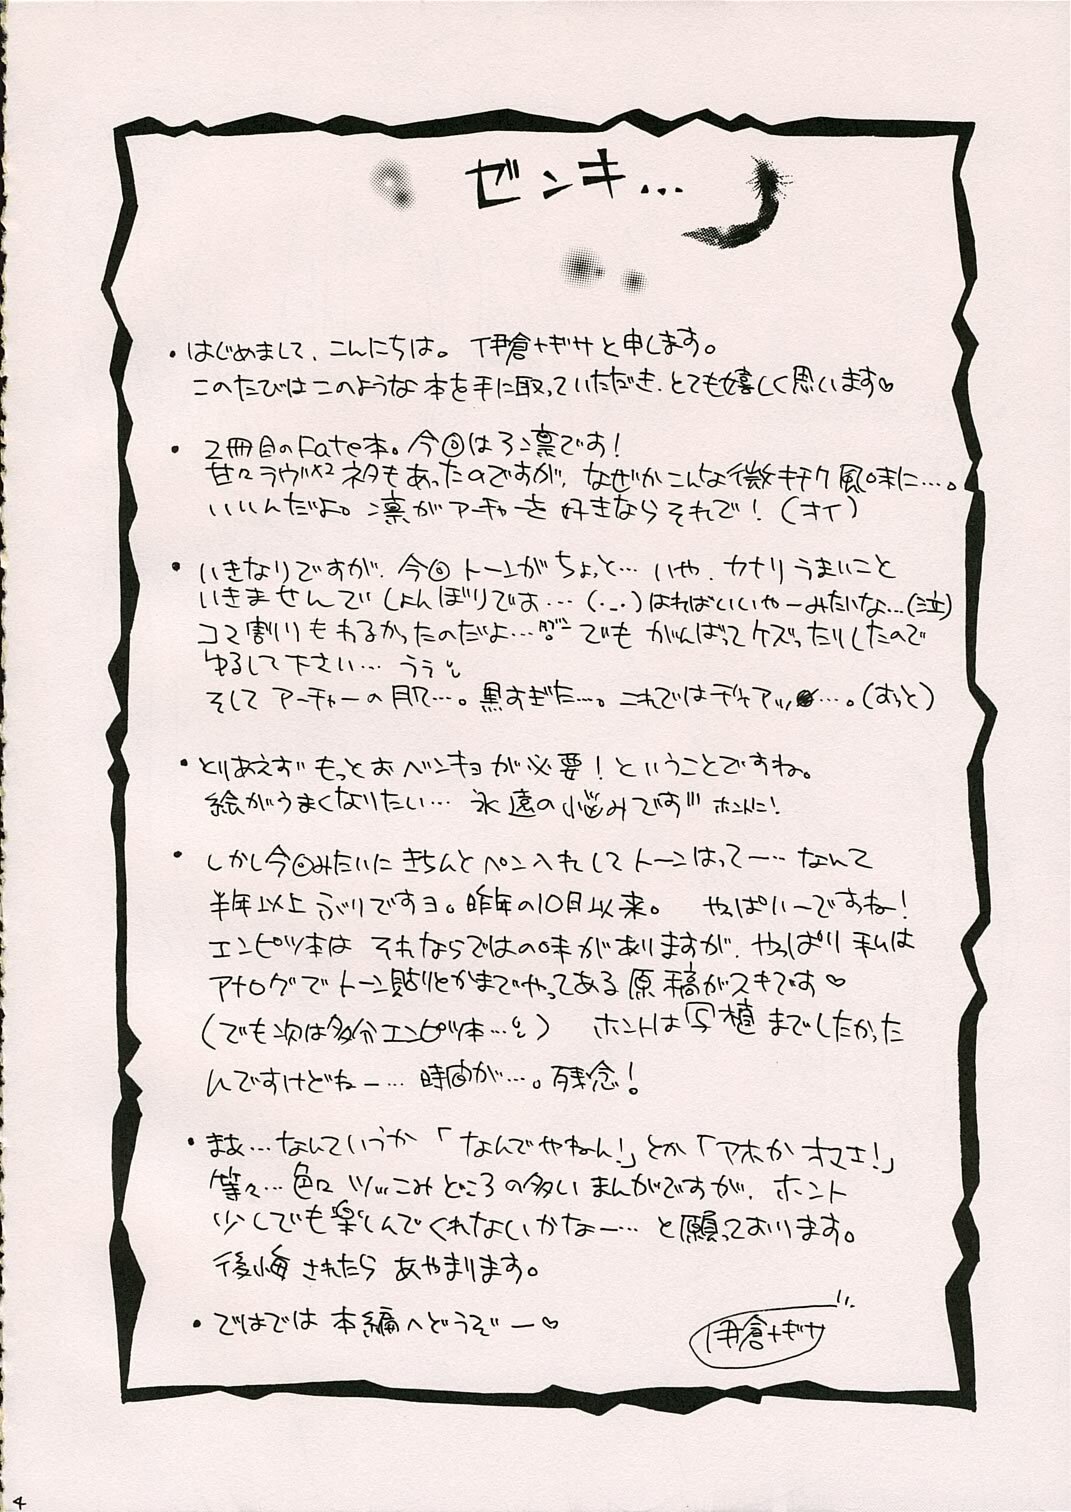 ゼンキ…
・はじめまして、こんにちは。伊倉ナギサと申します。
このたびはこのような本を手に取っていただき、とても嬉しく思います♡
・2冊目のFate本。今回は弓凛です！
甘々ラヴ×2ネタもあったのですが、なぜかこんな微キチク風味に…。
いいんだよ。凛がアーチャーを好きならそれで！（オイ）
・いきなりですが、今回トーンがちょっと…いや、カナリうまいこと
いきませんでしょんぼりでお…(._.)はればいいやーみたいな…（泣）
コマ割りもわるかったのだよ…タブン でもがんばってケズったりしたので
ゆるして下さい…うぅ
そしてアーチャーの肌…。黒すぎた…。これではディアッ…。（おっと）
・とりあえずもっとおベンキョが必要！ということですね。
絵がうまくなりたい…永遠の悩みです ホントに！
・しかし今回みたいにきちんとペン入れしてトーンはってー…なんて
半年以上ぶりですヨ。昨年の10月以来。 やっぱいーですね！
エンピツ本はそれならではの味がありますが、やっぱり私は
アナログでトーン貼りとかまでやってある原稿がスキです♡
（でも次は多分エンピツ本…） ホントは写植までしたかった
んですけどねー…時間が…。残念！
・まあ…なんていうか「なんでやねん！」とか「アホかオマエ！」
等々…色々ツッこみどころの多いまんがですが、ホント
少しでも楽しんでくれないかなー…と願っております。
後悔されたらあやまります。
・ではでは本編へどうぞー♡
伊倉ナギサ
4